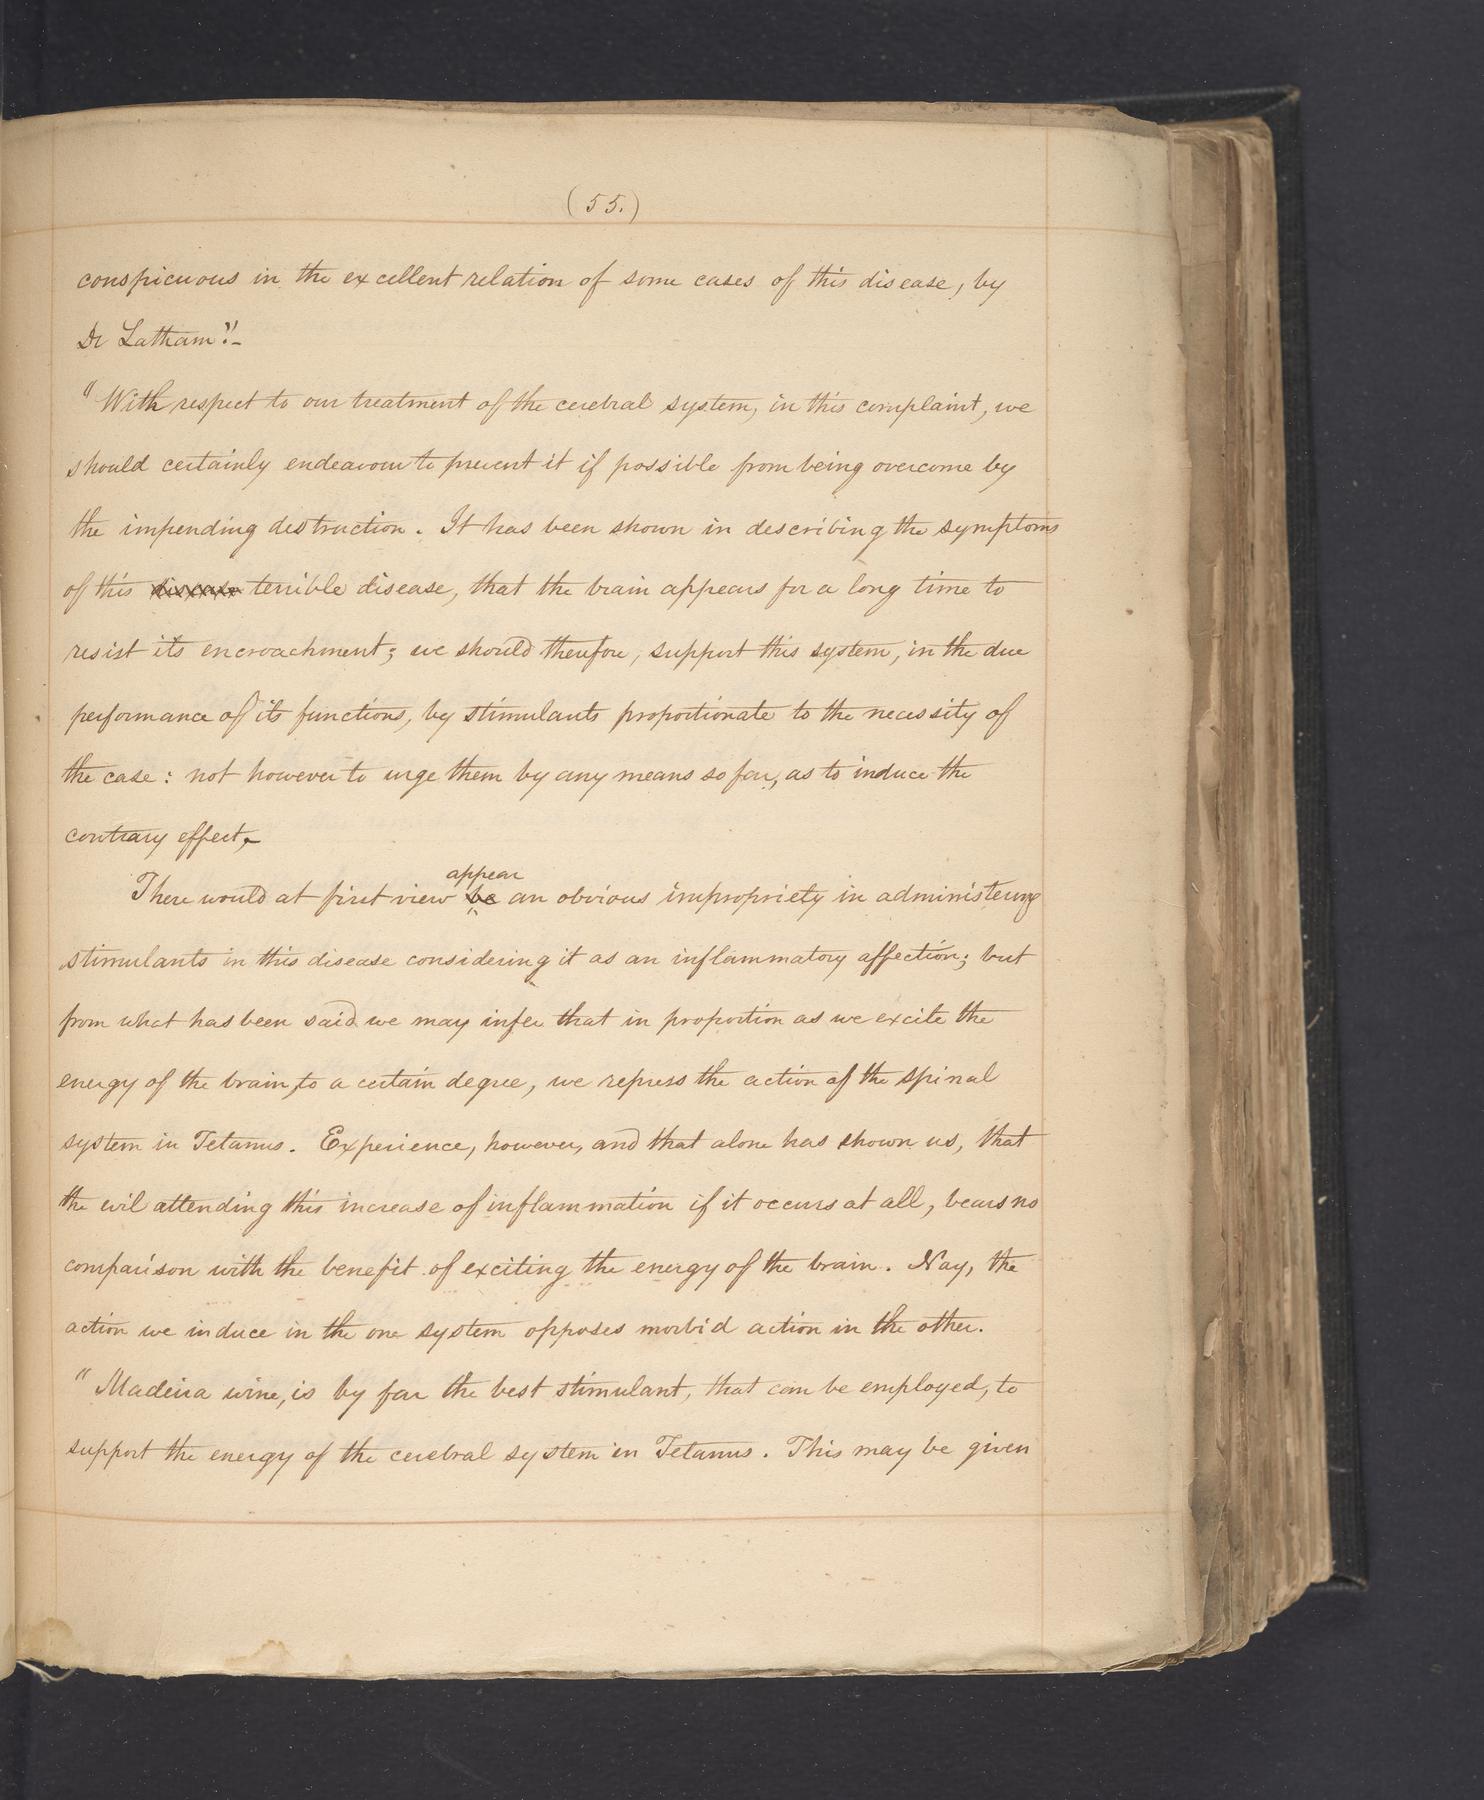 (55.)
conspicuous in the excellent relation of some cases of this disease, by
Dr Latham".-
"With respect to our treatment of the cerebral system, in this complaint, we
should certainly endeavour to prevent it if possible from being overcome by
the impending destruction. It has been shown in describing the symptoms
of this disease terrible disease, that the brain appears for a long time to
resist its encroachment; we should therefore, support this system, in the due
performance of its functions, by stimulants proportionate to the necessity of
the case: not however to urge them by any means so far, as to induce the
contrary effect.
appear
There would at first view be an obvious impropriety in administering
stimulants in this disease considering it as an inflammatory affection; but
from what has been said we may infer that in proportion as we excite the
energy of the brain, to a certain degree, we repress the action of the spinal
system in Tetanus. Experience, however, and that alone has shown us, that
the evil attending this increase of inflammation if it occurs at all, bears no
comparison with the benefit of exciting the energy of the brain. Nay, the
action we induce in the one system opposes morbid action in the other.
"Madeira wine, is by far the best stimulant, that can be employed, to
support the energy of the cerebral system in Tetanus. This may be given